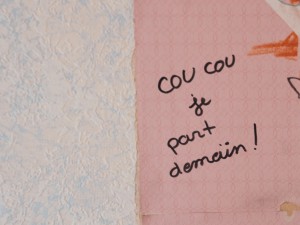 COU COU
je
part
demain !